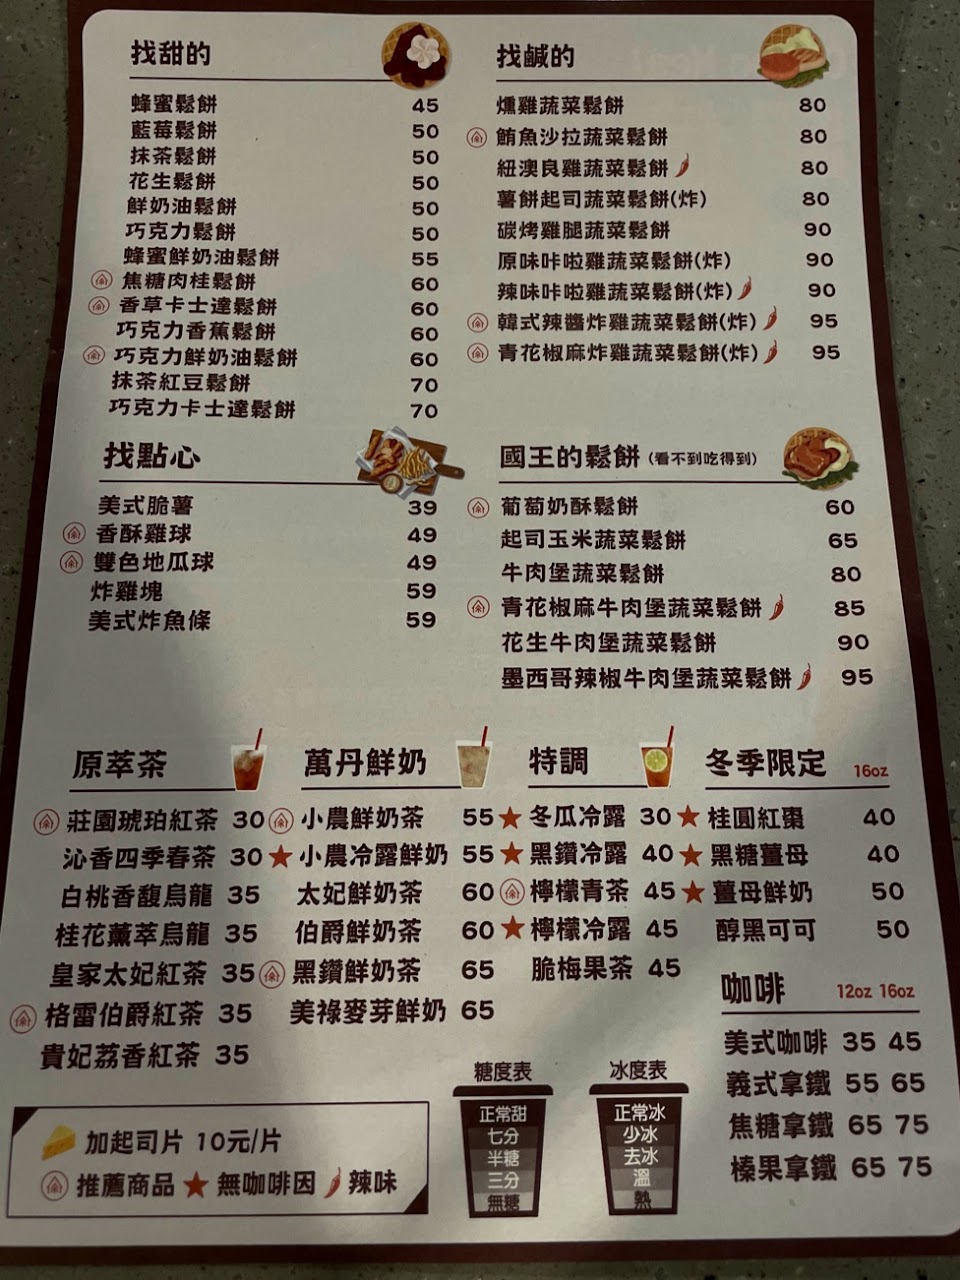 找甜的
蜂蜜鬆餅 45
藍莓鬆餅 50
抹茶鬆餅 50
花生鬆餅 50
鮮奶油鬆餅 50
巧克力鬆餅 50
蜂蜜鮮奶油鬆餅 55
焦糖肉桂鬆餅 60
香草卡士達鬆餅 60
巧克力香蕉鬆餅 60
巧克力鮮奶油鬆餅 60
抹茶紅豆鬆餅 70
巧克力卡士達鬆餅 70
找鹹的
燻雞蔬菜鬆餅 80
鮪魚沙拉蔬菜鬆餅 80
紐澳良雞蔬菜鬆餅 80
薯餅起司蔬菜鬆餅(炸) 80
碳烤雞腿蔬菜鬆餅 90
原味咔啦雞蔬菜鬆餅(炸) 90
辣味咔啦雞蔬菜鬆餅(炸) 90
韓式辣醬炸雞蔬菜鬆餅(炸) 95
青花椒麻炸雞蔬菜鬆餅(炸) 95
找點心
美式脆薯 39
香酥雞球 49
雙色地瓜球 49
炸雞塊 59
美式炸魚條 59
國王的鬆餅(看不到吃得到)
葡萄奶酥鬆餅 60
起司玉米蔬菜鬆餅 65
牛肉堡蔬菜鬆餅 80
青花椒麻牛肉堡蔬菜鬆餅 85
花生牛肉堡蔬菜鬆餅 90
墨西哥辣椒牛肉堡蔬菜鬆餅 95
原萃茶
莊園琥珀紅茶 30
沁香四季春茶 30
白桃香馥烏龍 35
桂花薰萃烏龍 35
皇家太妃紅茶 35
格雷伯爵紅茶 35
貴妃荔香紅茶 35
萬丹鮮奶
小農鮮奶茶 55
★小農冷露鮮奶 55
太妃鮮奶茶 60
伯爵鮮奶茶 60
黑鑽鮮奶茶 65
美祿麥芽鮮奶 65
特調
★冬瓜冷露 30
★黑鑽冷露 40
檸檬青茶 45
★檸檬冷露 45
脆梅果茶 45
冬季限定 16oz
★桂圓紅棗 40
★黑糖薑母 40
★薑母鮮奶 50
醇黑可可 50
咖啡 12oz 16oz
美式咖啡 35 45
義式拿鐵 55 65
焦糖拿鐵 65 75
榛果拿鐵 65 75
加起司片 10元/片
推薦商品 ★無咖啡因 辣味
糖度表
正常甜
七分
半糖
三分
無糖
冰度表
正常冰
少冰
去冰
溫
熱